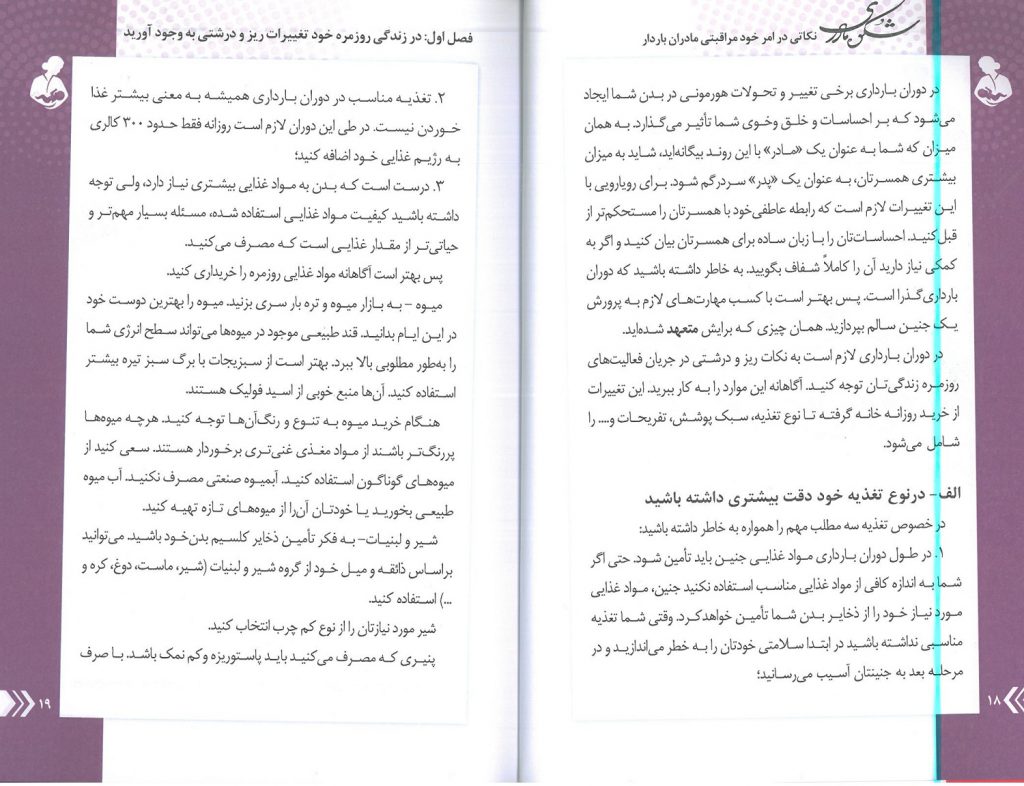 شکوه مادری
نکاتی در امر خود مراقبتی مادران باردار
در دوران بارداری برخی تغییر و تحولات هورمونی در بدن شما ایجاد
می‌شود که بر احساسات و خلق وخوی شما تأثیر می‌گذارد. به همان
میزان که شما به عنوان یک «مادر» با این روند بیگانه‌اید، شاید به میزان
بیشتری همسرتان، به عنوان یک «پدر» سردرگم شود. برای رویارویی با
این تغییرات لازم است که رابطه عاطفی‌خود با همسرتان را مستحکم‌تر از
قبل‌کنید. احساسات‌تان را با زبان ساده برای همسرتان بیان کنید و اگر به
کمکی نیاز دارید آن را کاملاً شفاف بگویید. به خاطر داشته باشید که دوران
بارداری‌گذرا است. پس بهتر است با کسب مهارت‌های لازم به پرورش
یک جنین سالم بپردازید. همان چیزی که برایش متعهد شده‌اید.
در دوران بارداری لازم است به نکات ریز و درشتی در جریان فعالیت‌های
روزمره زندگی‌تان توجه کنید. آگاهانه این موارد را به کار ببرید. این تغییرات
از خرید روزانه خانه گرفته تا نوع تغذیه، سبک پوشش، تفریحات و.... را
شامل می‌شود.
الف- درنوع تغذیه خود دقت بیشتری داشته باشید
در خصوص تغذیه سه مطلب مهم را همواره به خاطر داشته باشید:
۱. در طول دوران بارداری مواد غذایی جنین باید تأمین شود. حتی اگر
شما به اندازه کافی از مواد غذایی مناسب استفاده نکنید جنین، مواد غذایی
مورد نیاز خود را از ذخایر بدن شما تأمین خواهدکرد. وقتی شما تغذیه
مناسبی نداشته باشید در ابتدا سلامتی خودتان را به خطر می‌اندازید و در
مرحله بعد به جنینتان آسیب می‌رسانید؛
۱۸
فصل اول: در زندگی روزمره خود تغییرات ریز و درشتی به وجود آورید
۲. تغذیه مناسب در دوران بارداری همیشه به معنی بیشتر غذا
خوردن نیست. در طی این دوران لازم است روزانه فقط حدود ۳۰۰ کالری
به رژیم غذایی خود اضافه کنید؛
۳. درست است که بدن به مواد غذایی بیشتری نیاز دارد، ولی توجه
داشته باشید کیفیت مواد غذایی استفاده شده، مسئله بسیار مهم‌تر و
حیاتی‌تر از مقدار غذایی است که مصرف می‌کنید.
پس بهتر است آگاهانه مواد غذایی روزمره را خریداری کنید.
میوه - به بازار میوه و تره بار سری بزنید. میوه را بهترین دوست خود
در این ایام بدانید. قند طبیعی موجود در میوه‌ها می‌تواند سطح انرژی شما
را به‌طور مطلوبی بالا ببرد. بهتر است از سبزیجات با برگ سبز تیره بیشتر
استفاده کنید. آن‌ها منبع خوبی از اسید فولیک هستند.
هنگام خرید میوه به تنوع و رنگ‌آن‌ها توجه کنید. هرچه میوه‌ها
پررنگ‌تر باشند از مواد مغذی غنی‌تری برخوردار هستند. سعی کنید از
میوه‌های گوناگون استفاده کنید. آبمیوه صنعتی مصرف نکنید. آب میوه
طبیعی بخورید یا خودتان آن‌را از میوه‌های تازه تهیه کنید.
شیر و لبنیات- به فکر تأمین ذخایر کلسیم بدن‌خود باشید. می‌توانید
براساس ذائقه و میل خود از گروه شیر و لبنیات (شیر، ماست، دوغ، کره و
...) استفاده کنید.
شیر مورد نیازتان را از نوع کم چرب انتخاب کنید.
پنیری که مصرف می‌کنید باید پاستوریزه وکم نمک باشد. با صرف
۱۹